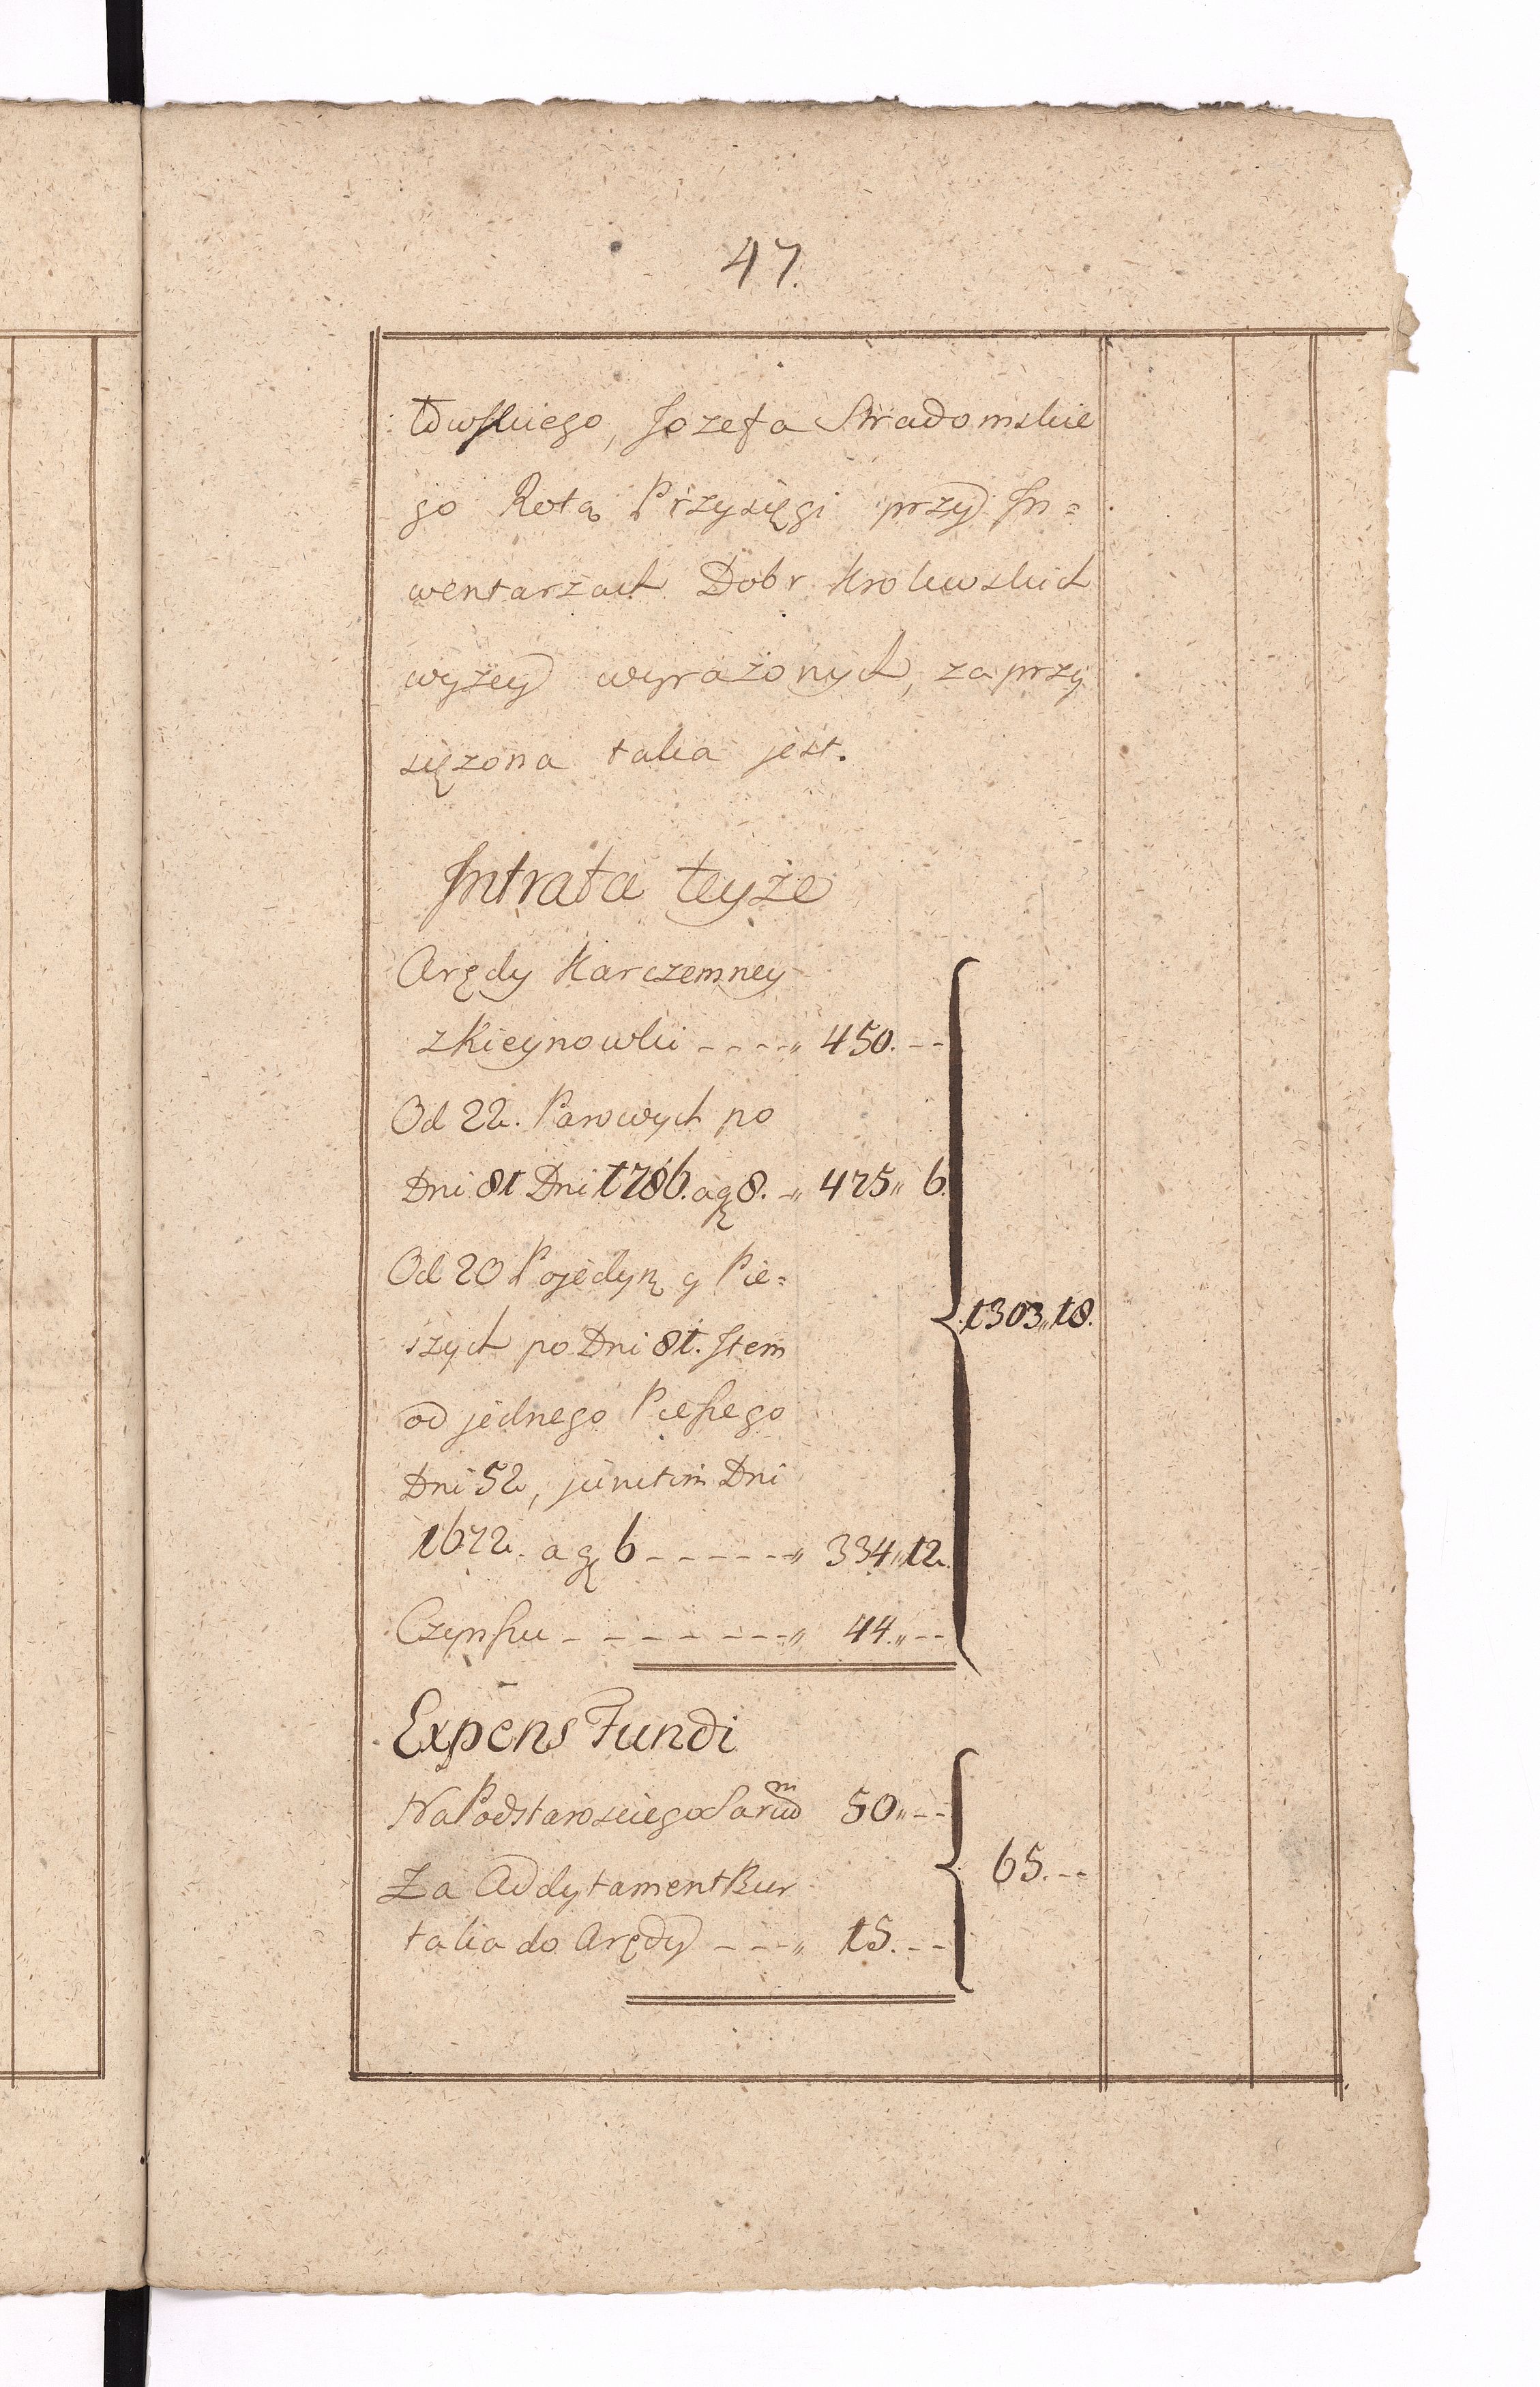 47.
łowskiego, Jozefa Stradomskie
go Rotą Przysięgi przy In=
wentarzach Dobr Krolewskich
wyzey wyrażonych, zaprzy
siężona taka jest.
Intrata teyże
Arędy Karczemney
z Kieynowki - - - - „ 450. - -
Od 22. Parowych po
Dni 81 Dni 1786. a gę 8. - „ 475 „ 6.
Od 20 Pojedyn. y Pie=
szych po Dni 81. Item
od jednego Pieszego
Dni 52, junctim Dni
1672. a gę 6 - - - - - - „ 334 „ 12.
Czynszu - - - - - - - - „ 44. „ - -
1303 „ 18.
Expens Fundi
Na Podstarosciego 50 „ - -
Za Addytament Kur
taka do Arędy - - - „ 15. - -
65. - -